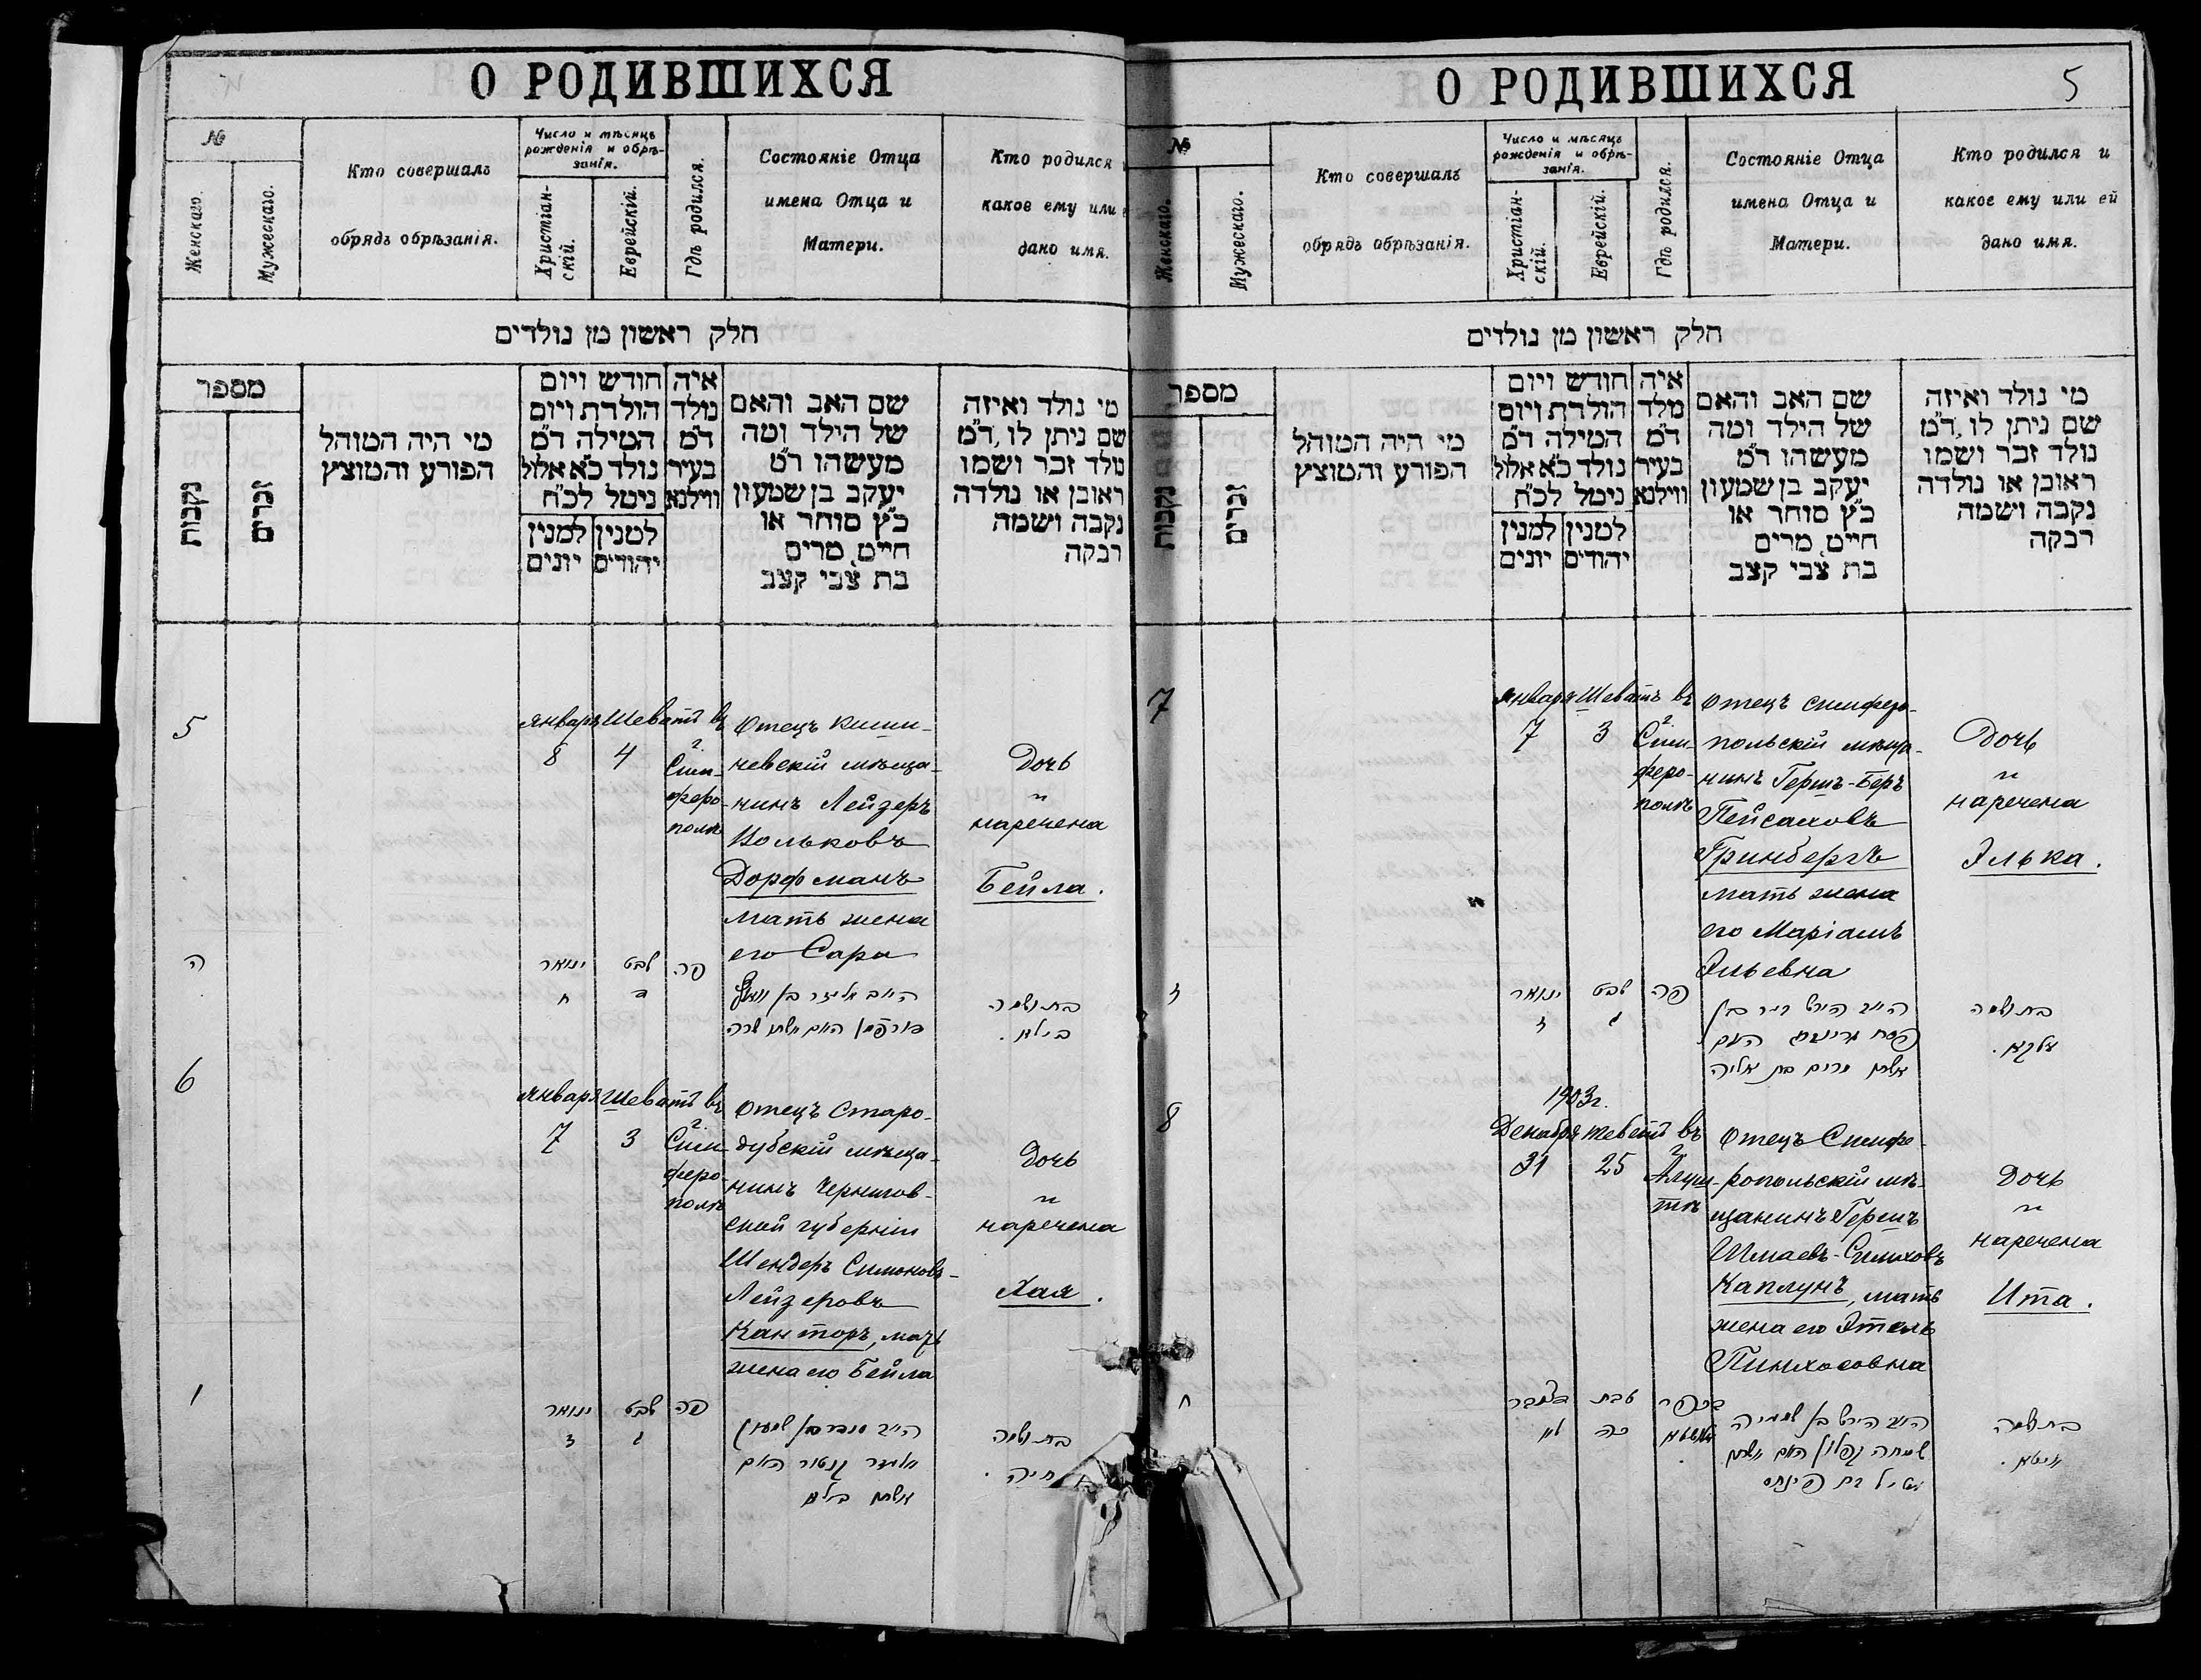 О РОДИВШИХСЯ
№
Женскаго.
Мужескаго.
Кто совершалъ
обрядъ обрѣзанія.
Число и мѣсяцъ
рожденія и обрѣ-
занія.
Христіан-
скій.
Еврейскій.
Гдѣ родился.
Состояніе Отца
имена Отца и
Матери.
Кто родился
какое ему или
дано имя.
חלק ראשון מן נולדים
מספר
נקבות
זכרים
מי היה המוהל
הפורע והמוצץ
חודש ויום
הולדת ויום
המילה ד"מ
נולד כ"א אלול
ניטל לכ"ח
למנין
יונים
למנין
יהודים
איה
נולד
ד"מ
בעיר
ווילנא
שם האב והאם
של הילד ומה
מעשהו ד"מ
יעקב בן שמעון
כ"ץ סוחר או
חייט, מרים
בת צבי קצב
מי נולד ואיזה
שם ניתן לו, ד"מ
נולד זכר ושמו
ראובן או נולדה
נקבה ושמה
רבקה
5
Января
8
Шеватъ
4
въ
г.
Сим-
феро-
полѣ
Отецъ Киши-
невскій мѣща-
нинъ Лейзеръ
Вольковъ
Дорфманъ
мать жена
его Сара
Дочь
и
наречена
Бейла.
ה
ינואר
ח
שבט
ד
פה
בת ושמה
ביילא.
6
Января
7
Шеватъ
3
въ
г.
Сим-
феро-
полѣ
Отецъ Старо-
дубскій мѣща-
нинъ Чернигов-
ской губерніи
Шендеръ Симоновъ-
Лейзеровъ
Канторъ, мать
жена его Бейла
Дочь
и
наречена
Хая.
ו
ינואר
ז
שבט
ג
פה
אליעזר קנטור האם
אשתו ביילא
בת ושמה
חיה.
О РОДИВШИХСЯ
5
№
Женскаго.
Мужескаго.
Кто совершалъ
обрядъ обрѣзанія.
Число и мѣсяцъ
рожденія и обрѣ-
занія.
Христіан-
скій.
Еврейскій.
Гдѣ родился.
Состояніе Отца
имена Отца и
Матери.
Кто родился и
какое ему или ей
дано имя.
חלק ראשון מן נולדים
מספר
נקבות
זכרים
מי היה המוהל
הפורע והמוצץ
חודש ויום
הולדת ויום
המילה ד"מ
נולד כ"א אלול
ניטל לכ"ח
למנין
יונים
למנין
יהודים
איה
נולד
ד"מ
בעיר
ווילנא
שם האב והאם
של הילד ומה
מעשהו ד"מ
יעקב בן שמעון
כ"ץ סוחר או
חייט, מרים
בת צבי קצב
מי נולד ואיזה
שם ניתן לו, ד"מ
נולד זכר ושמו
ראובן או נולדה
נקבה ושמה
רבקה
7
Января
7
Шеватъ
3
въ
г.
Сим-
феро-
полѣ
Отецъ Симферо-
польскій мѣща-
нинъ Гершъ-Беръ
Пейсаховъ
Гринбергъ
мать жена
его Маріамъ
Эльевна
Дочь
и
наречена
Элька.
ז
ינואר
ז
שבט
ג
פה
פסח גרינברג האם
אשתו מרים בת אליה
בת ושמה
עלקא.
8
1903 г.
Декабря
31
Теветъ
25
въ
г.
Алуш-
тѣ
Отецъ Симфе-
ропольскій мѣ-
щанинъ Гершъ
Шмаевъ-Симховъ
Каплунъ, мать
жена его Этель
Пинхосовна
Дочь
и
наречена
Ита.
ח
דעצמבר
לא
טבת
כה
בכפר
אלושטא
האב הירש בן שמעיה
שמחה קפלון האם אשתו
עטיל בת פינחס
בת ושמה
איטא.